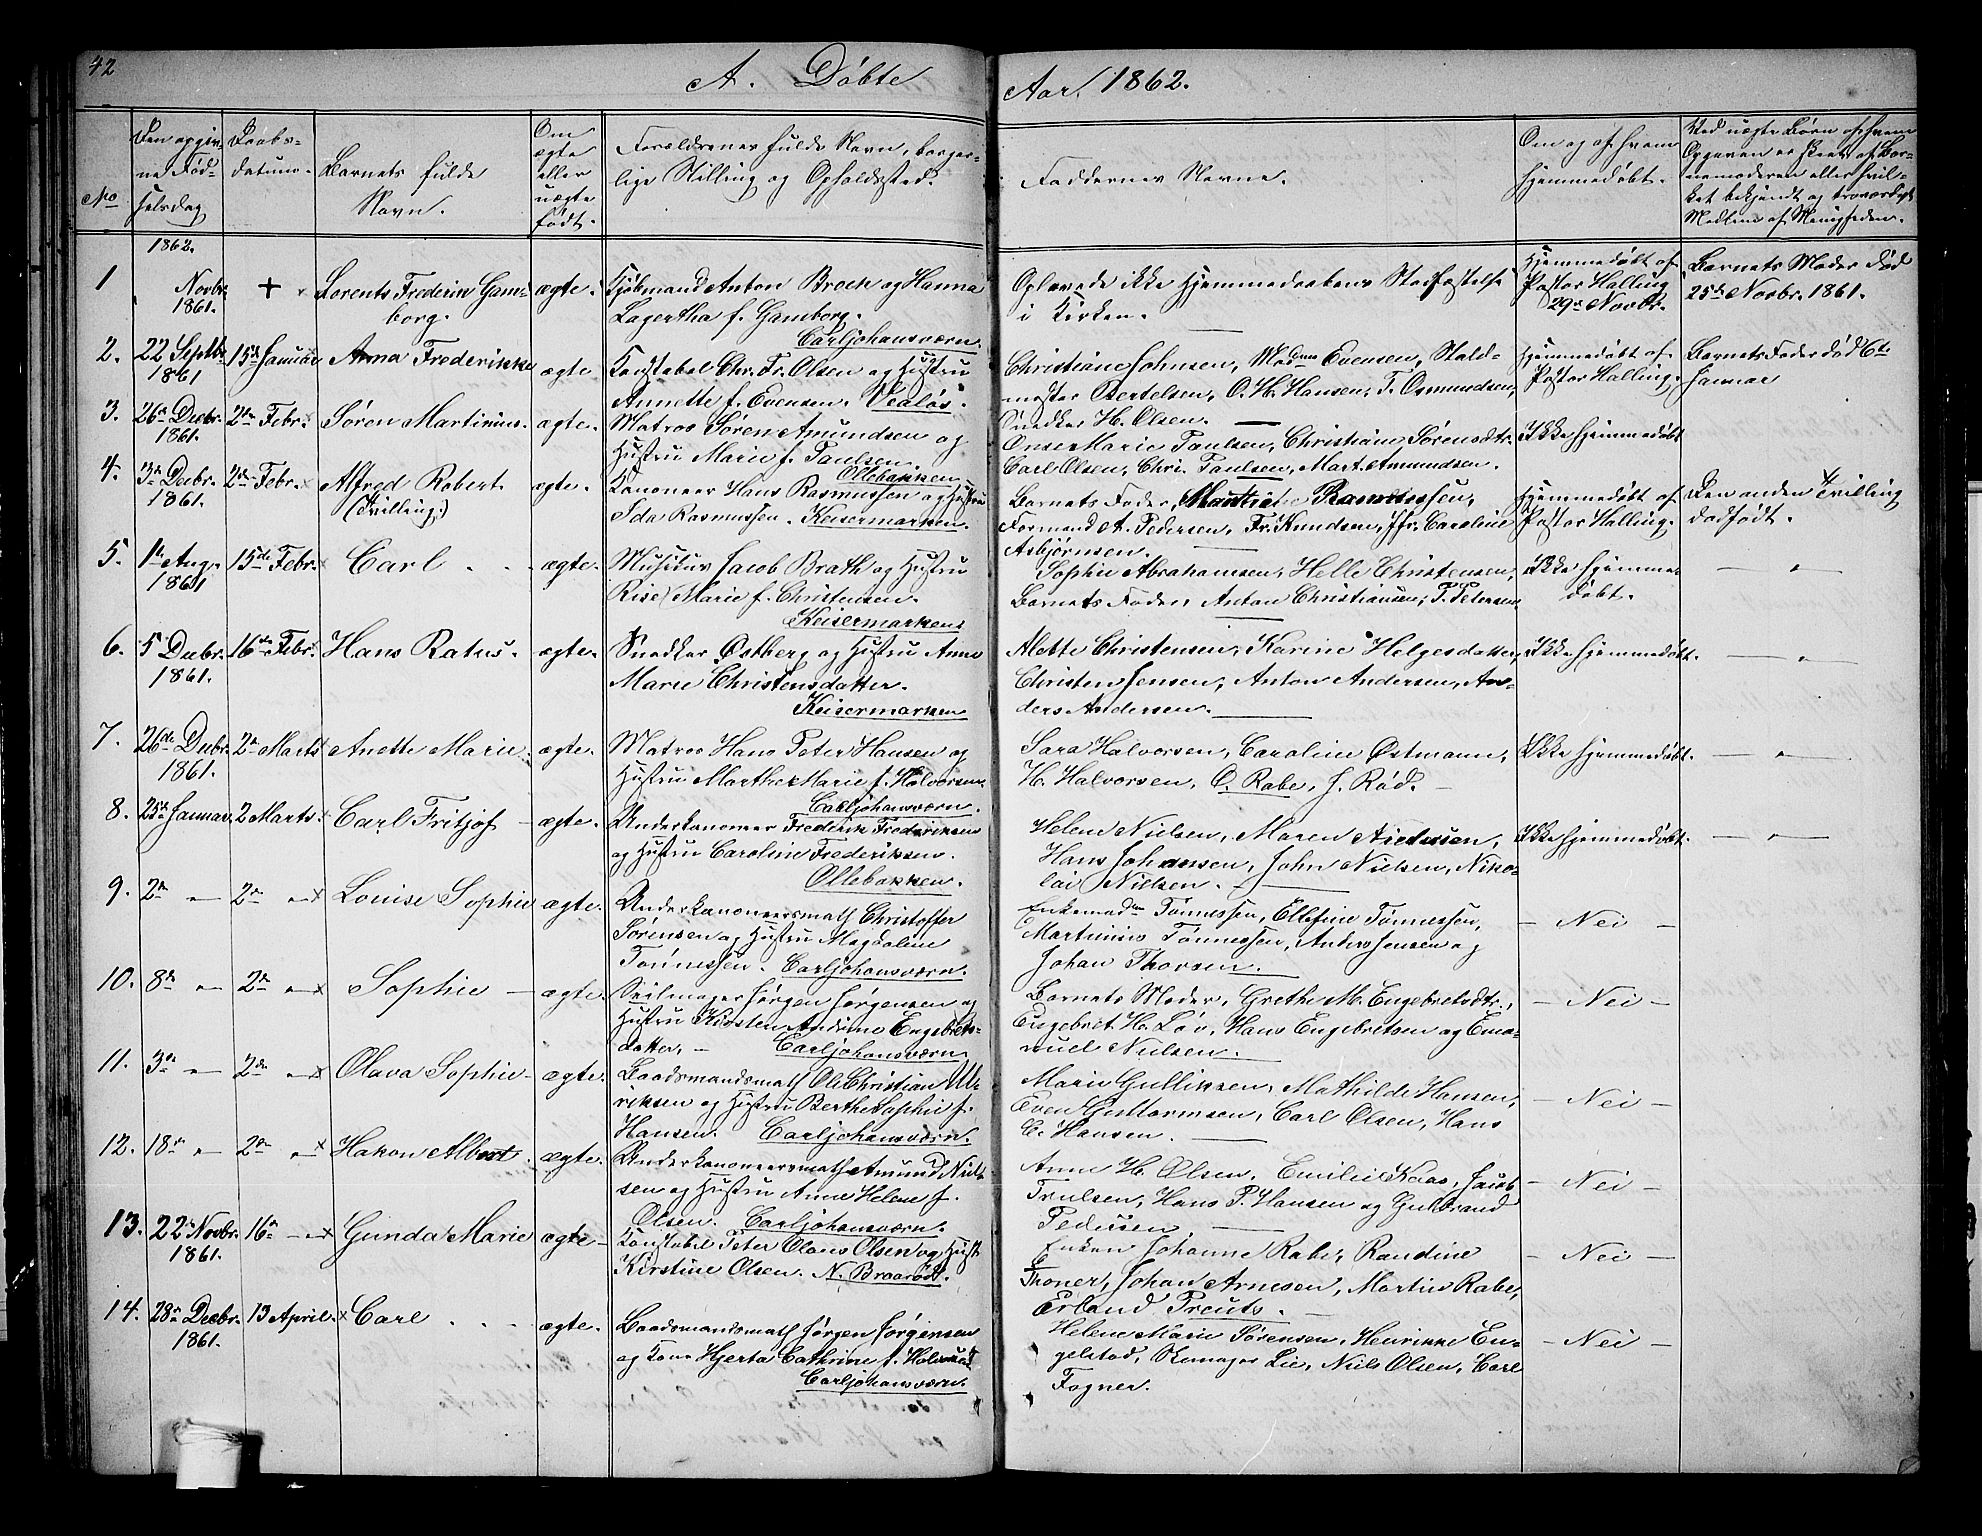 42
A. Døbte
Aar 1862.
No
Den opgiv-
ne Fød-
selsdag
Daabs-
datum.
Barnets fulde
Navn.
Om
ægte
eller
uægte
født.
Forældrenes fulde Navn, borger-
lige Stilling og Opholdssted.
Faddernes Navne.
Om og af hvem
hjemmedøbt.
Ved uægte Børn af hvem
Opgaven er skeet af Bar-
nemoderen eller hvil-
ket bekjendt og troværdigt
Medlem af Menigheden.
1862.
1
Novbr.
1861.
+
Lorents Frederik Gam-
borg.
ægte.
Kjøbmand Anton Broch og Hanna
Lagertha f. Gamborg.
Carljohansværn.
Oplevede ikke Hjemmedaabens Stadfæstelse
i Kirken.
Hjemmedøbt af
Pastor Halling
29de Novbr.
Barnets Moder død
25de Novbr. 1861.
2.
22 Septbr.
1861
15de Januar
Anna Frederikke
ægte
Konstabel Chr. Fr. Olsen og Hustru
Annette f. Evensen. Vealøs.
Christiane Johnsen, Madme Evensen, Stald-
mester Bertelsen, O. H. Hansen, T. Osmundsen,
Snedker H. Olsen.
Hjemmedøbt af
Pastor Halling.
Barnets Fader død 6te
Januar
3.
26de Decbr.
1861.
2den Febr.
Søren Martinius.
ægte.
Matros Søren Amundsen og
Hustru Marie f. Paulsen.
Ollebakken.
Marie Paulsen, Christiane Sørensdtr.
Carl Olsen, Chr. Paulsen, Mart. Amundsen.
Ikke hjemmedøbt
4.
3de Decbr.
1861.
2den Febr.
Alfred Robert.
(Tvilling:)
ægte.
Kanoneer Hans Rasmussen og Hustru
Ida Rasmussen. Keisermarken.
Barnets Fader, Rasmussen,
Formand A. Pedersen, Fr. Knudsen, Jfr. Caroline
Asbjørnsen.
Hjemmedøbt af
Pastor Halling.
Den anden Tvilling
dødfødt.
5.
1ste Aug.
1861
15de Febr.
Carl
ægte.
Musikus Jacob Brath og Hustru
Rise Marie f. Christensen.
Keisermarken
Sophie Abrahamsen, Helle Christensen,
Barnets Fader, Anton Christiansen, P. Petersen
Ikke hjemme-
døbt.
— " —
6.
5 Decbr.
1861.
16de Febr.
Hans Ratus.
ægte.
Snedker Østberg og Hustru Anne
Marie Christensdatter.
Keisermarken
Alette Christensen, Karine Helgesdatter,
Christen Jensen, Anton Andersen, An-
ders Andersen.
Ikke hjemmedøbt.
— " —
7.
26de Decbr.
1861.
2den Marts
Anette Marie
ægte.
Matros Hans Peter Hansen og
Hustru Marthe Marie f. Halvorsen
Carljohansværn.
Sara Halvorsen, Caroline Østmann,
H. Halvorsen, O. Rabe, J. Rød.
Ikke hjemmedøbt.
— " —
8.
25de Januar
2 Marts.
Carl Fritjof
ægte.
Underkanoneer Frederik Frederiksen
og Hustru Caroline Frederiksen.
Ollebakken.
Helene Nielsen, Maren Andersen,
Hans Johansen, John Nielsen, Niko-
lai Nielsen.
Ikke hjemmedøbt.
— " —
9.
2den —
2den —
Louise Sophie
ægte.
Underkanoneersmath Christoffer
Sørensen og Hustru Magdalene
Tønnessen. Carljohansværn.
Enkemadme Tønnessen, Ellefine Tønnessen,
Martinius Tønnessen, Anders Jensen og
Johan Thorsen.
— Nei —
10.
8de —
2den —
Sophie —
ægte.
Seilmager Jørgen Jørgensen og
Hustru Kirsten Andrine Engebrets-
datter. — Carljohansværn
Barnets Moder, Grethe M. Engebretsdtr.,
Engebret H. Løv, Hans Engebretsen og Ema-
nuel Nielsen.
— Nei —
11.
3de —
2den —
Olava Sophie —
ægte.
Baadsmandsmath Ole Christian Ul-
riksen og Hustru Berthe Sophie f.
Hansen. Carljohansværn.
Marie Gulliksen, Mathilde Hansen,
Even Guttormsen, Carl Olsen, Hans
C. Hansen.
— Nei —
12.
18de —
2den —
Hakon Albert.
ægte.
Underkanoneersmath Amund Niel-
sen og Hustru Anne Helene f.
Olsen. Carljohansværn.
Anne H. Olsen, Emilie Kaas, Jacob
Trulsen, Hans P. Hansen og Gulbrand
Pedersen
— Nei —
13.
22de Novbr.
1861.
16de —
Gunda Marie
ægte —
Konstabel Peter Olaus Olsen og Hust.
Kirstine Olsen. N. Braarød.
Enken Johanne Rabe, Randine
Thoner, Johan Arnesen, Martin Rabe,
Erland Preuts.
— Nei —
14.
28de Decbr.
1861.
13 April.
Carl
ægte.
Baadsmandsmath Jørgen Jørgensen
og Kone Hjerta Cathrine f. Halvorsen
Carljohansværn.
Helene Marie Sørensen, Henrikke En-
gelstad, Skomager Lie, Niels Olsen, Carl
Fogner.
— Nei —